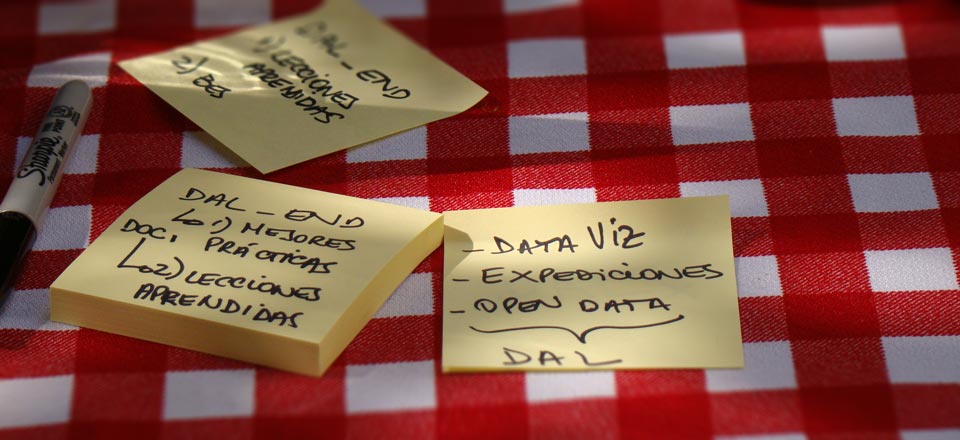 DAL - END
1) LECCIONES
APRENDIDAS
2)
Sharpie
DAL - END
↳ 1) MEJORES
DOC. PRÁCTICAS
↳ 2) LECCIONES
APRENDIDAS
- DATA VIZ
- EXPEDICIONES
- OPEN DATA
DAL